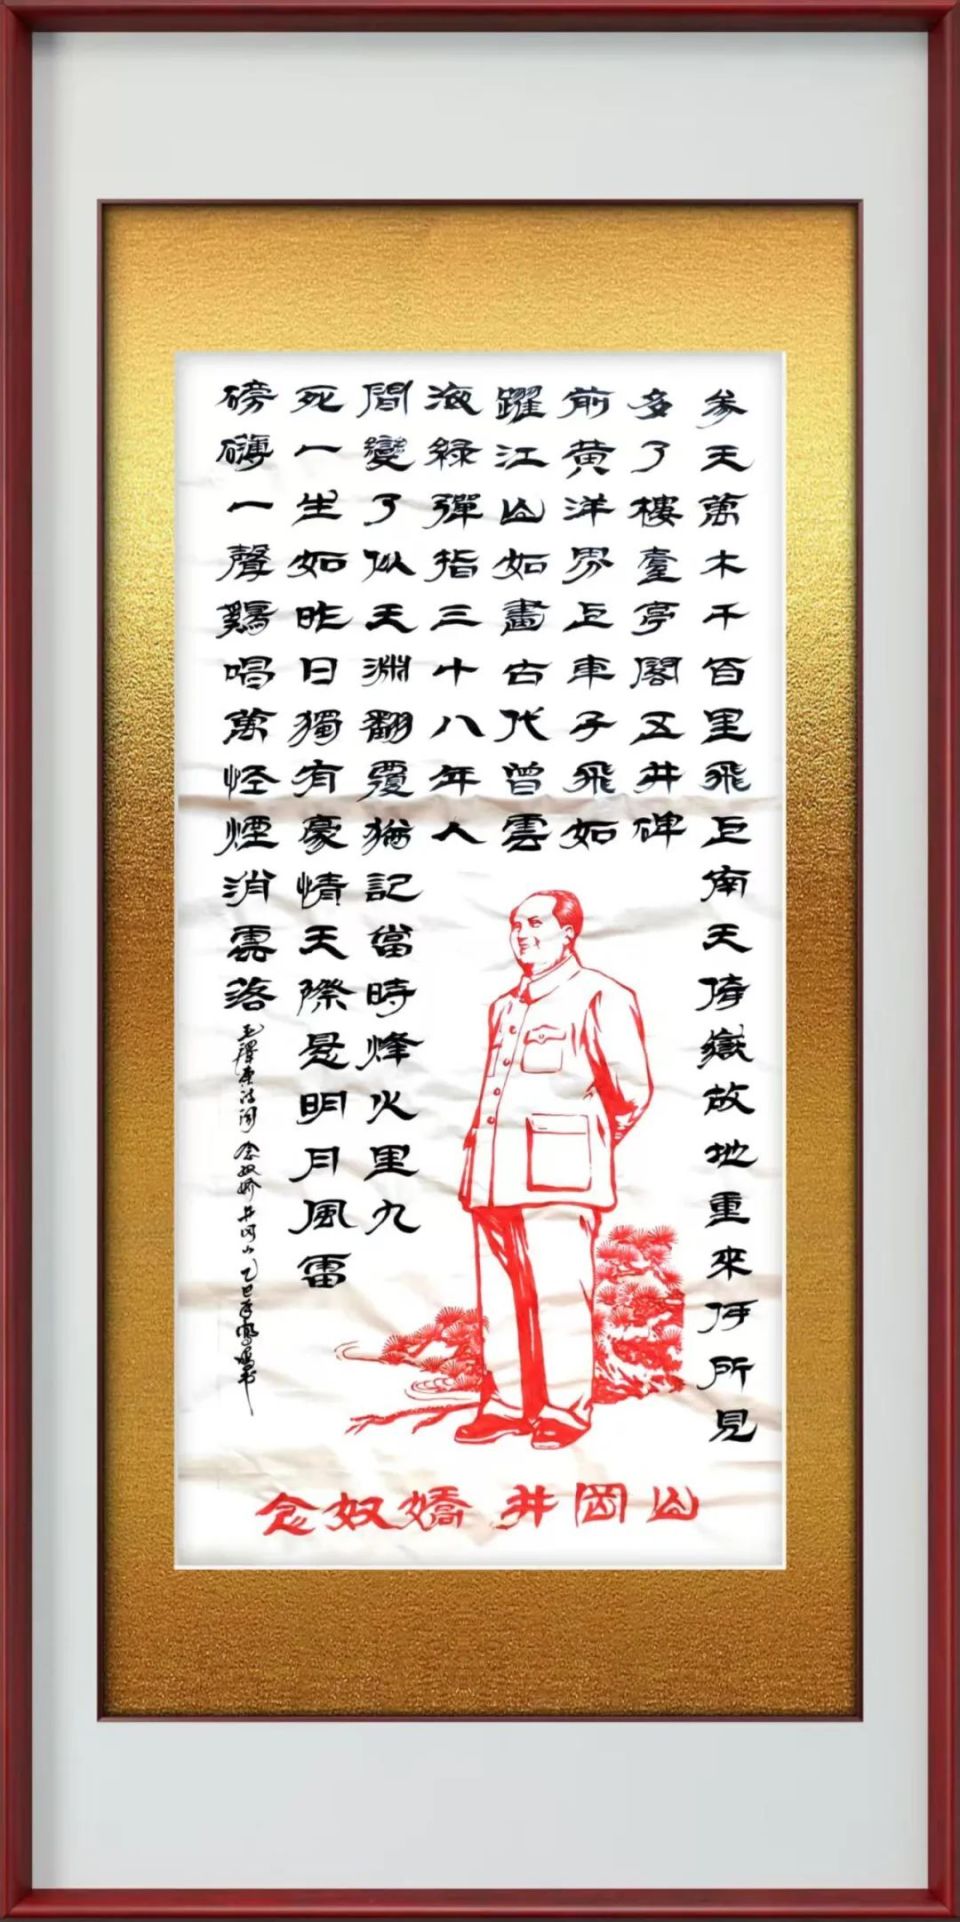 參天萬木千百里飛上南天倚嶽故地重來何所見
多了樓臺亭閣五井碑
前黄洋界上車子飛如
躍江山如畫古代曾雲
海綠彈指三十八年人
間變了似天淵翻覆猶記當時烽火里九
死一生如昨日獨有豪情天際悬明月風雷
磅礴一聲鷄唱萬怪煙消雲落
毛澤東诗词 念奴娇井冈山乙巳年书
念奴嬌 井岡山